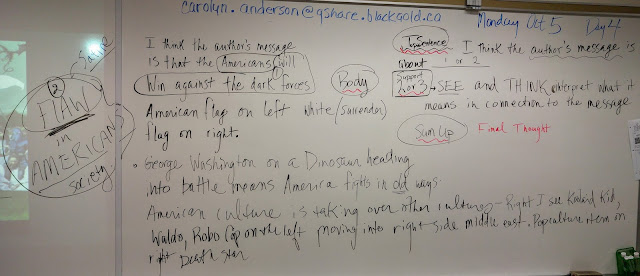 carolyn.anderson@gshare.blackgold.ca
Monday Oct 5 Day 4
Satire
2
FLAW
in
AMERICANS
society
I think the author's message
is that the Americans will
1
Win against the dark forces
American flag on left White/Surrender/
flag on right.
Body
Topic Sentence I think the author's message is
1 or 2
Support
1 or 2 SEE and THINK interpret what it
means in connection to the message
Sum Up Final Thought
George Washington on a Dinosaur heading
into battle means America fights in old ways.
American culture is taking over other cultures - Right I see Kid,
Waldo, Robo Cop on the left moving into right-side middle east. Pop culture item in
right Death star